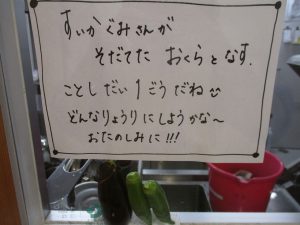 すいかぐみさんが
そだてた おくらとなす.
ことしだい1ごうだね
どんなりょうりにしようかな〜
おたのしみに!!!